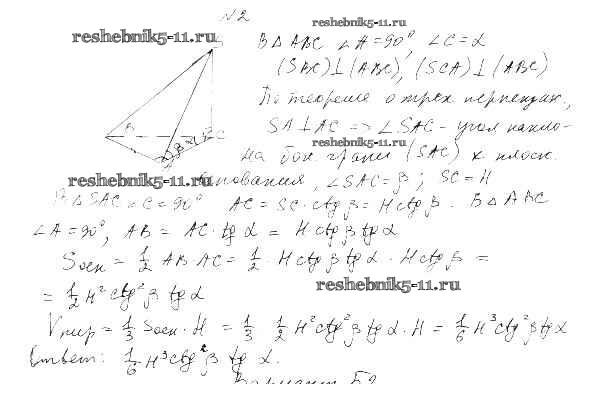 N2
reshebnik5-11.ru
reshebnik5-11.ru
В △ ABC ∠A = 90°, ∠C = α
(SBC) ⊥ (ABC), (SCA) ⊥ (ABC)
По теореме о трех перпендик.,
SA ⊥ AC => ∠SAC - угол накло-
reshebnik5-11.ru
на бок. грани (SAC) к плоск.
reshebnik5-11.ru
основания, ∠SAC = β; SC = H
В △ SAC ∠C = 90° AC = SC · ctg β = H ctg β. В △ ABC
∠A = 90°, AB = AC · tg α = H ctg β tg α
Sосн = 1/2 AB · AC = 1/2 · H ctg β tg α · H ctg β =
= 1/2 H² ctg² β tg α
reshebnik5-11.ru
Vпир = 1/3 Sосн · H = 1/3 1/2 H² ctg² β tg α · H = 1/6 H³ ctg² β tg α
Ответ: 1/6 H³ ctg² β tg α.